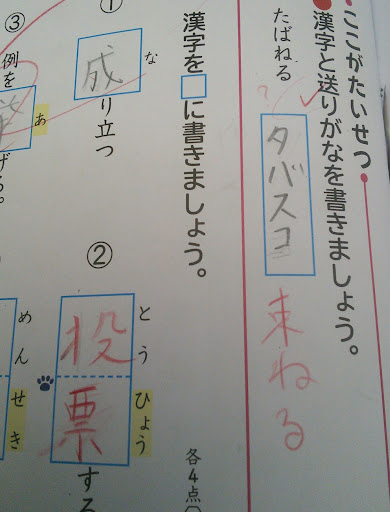 ここがたいせつ
漢字と送りがなを書きましょう。
たばねる
タバスコ
束ねる
漢字を□に書きましょう。
①
な
成り立つ
②
とうひょう
投票する
各4点
③
例を
あ
げる。
めんせき